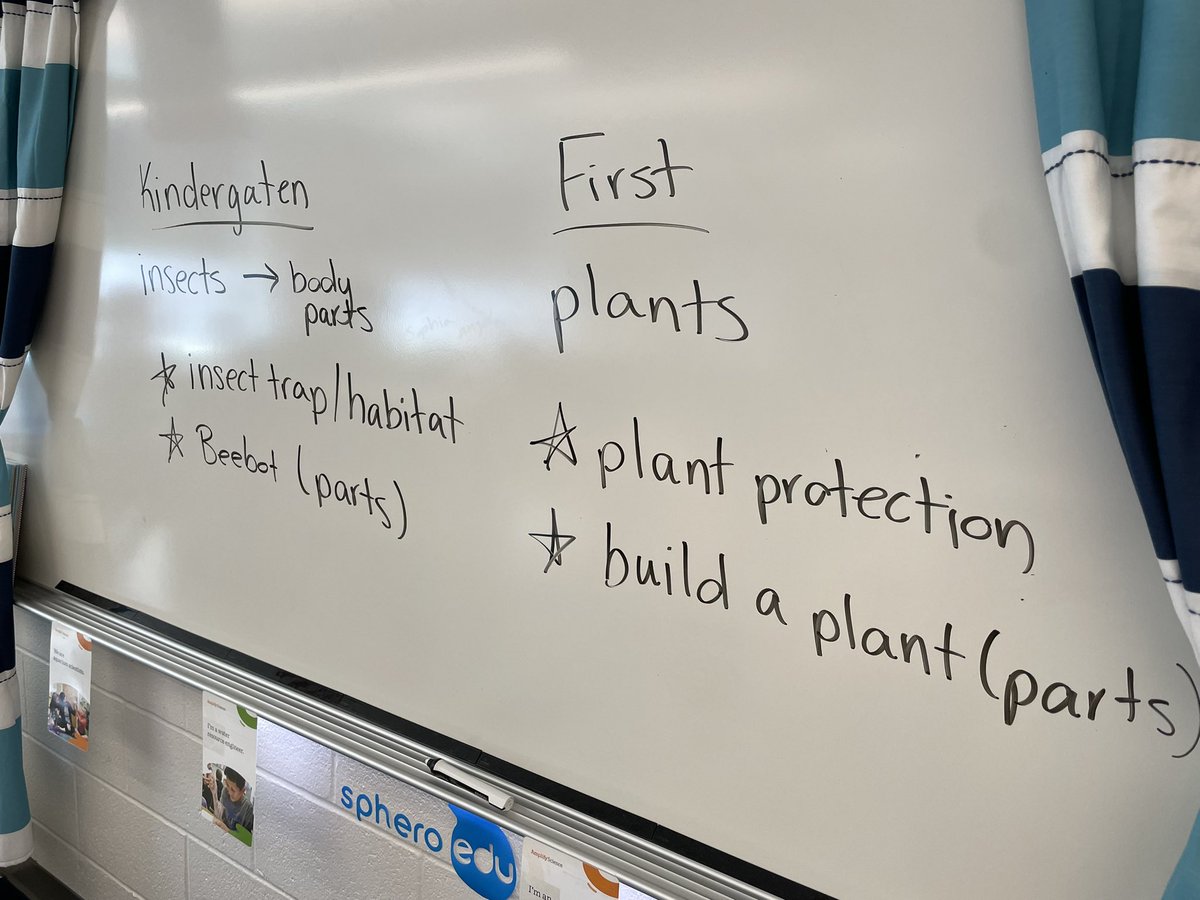 Kindergaten
insects → body
parts
☆ insect trap/habitat
☆ Beebot (parts)
First
plants
☆ plant protection
☆ build a plant (parts)
I'm a water
resource engineer.
sphero edu
AmplifyScience
I'm an